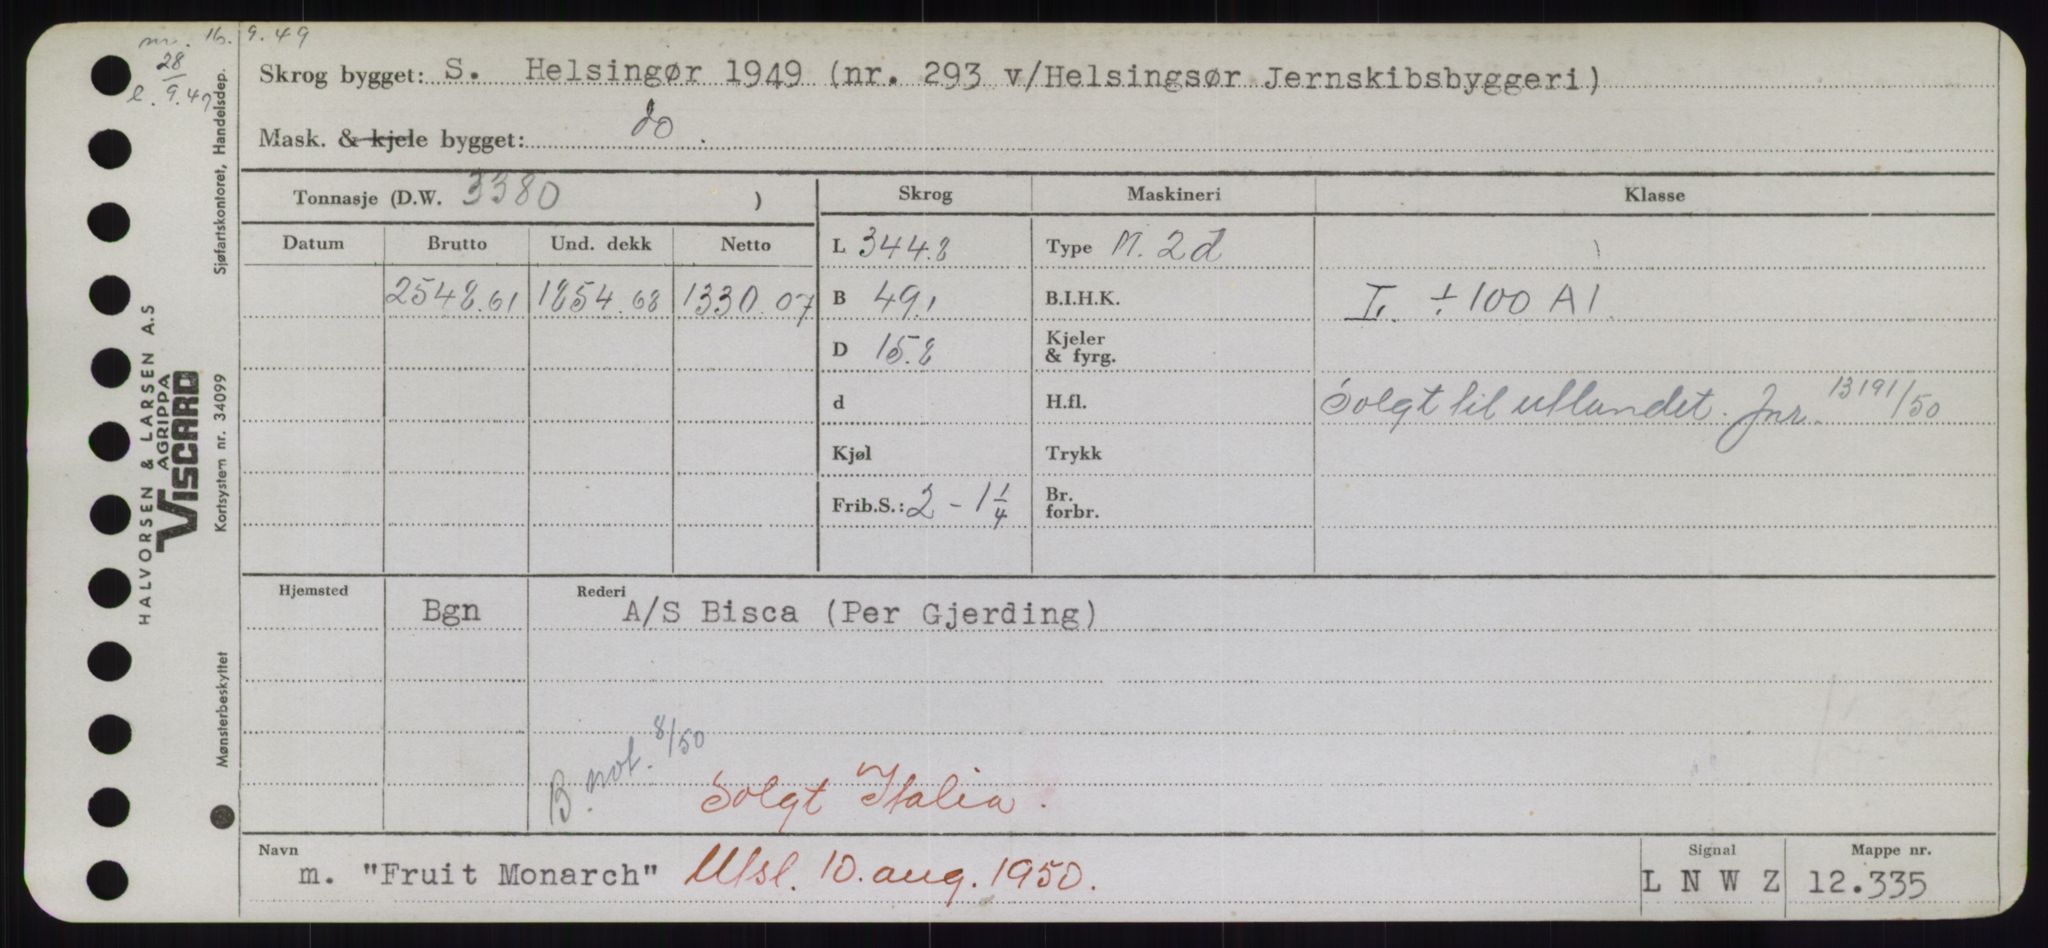 nr. 16. 9. 49
28
l. 9.47
Skrog bygget: S. Helsingør 1949 (nr. 293 v/Helsingsør Jernskibsbyggeri)
Mask. & kjele bygget: do.
Tonnasje (D.W. 3380 )
Skrog Maskineri Klasse
Datum Brutto Und. dekk Netto
L 344.8 Type M. 2d
2548.61 1854.68 1330.07 B 49.1 B.I.H.K. I. ÷ 100 A1.
D 15.8 Kjeler
& fyrg.
d H.fl. Solgt til utlandet. Jnr. 13191/50
Kjøl Trykk
Frib.S.: 2 - 1 1/4 Br.
forbr.
Hjemsted Rederi
Bgn A/S Bisca (Per Gjerding)
B. not. 8/50
Solgt Italia.
Navn Signal Mappe nr.
m. "Fruit Monarch" Utsl. 10. aug. 1950. L N W Z 12.335
Sjøfartskontoret, Handelsdep.
HALVORSEN & LARSEN A.S
AGRIPPA
VISCARD
Kortsystem nr. 34099
Mønsterbeskyttet